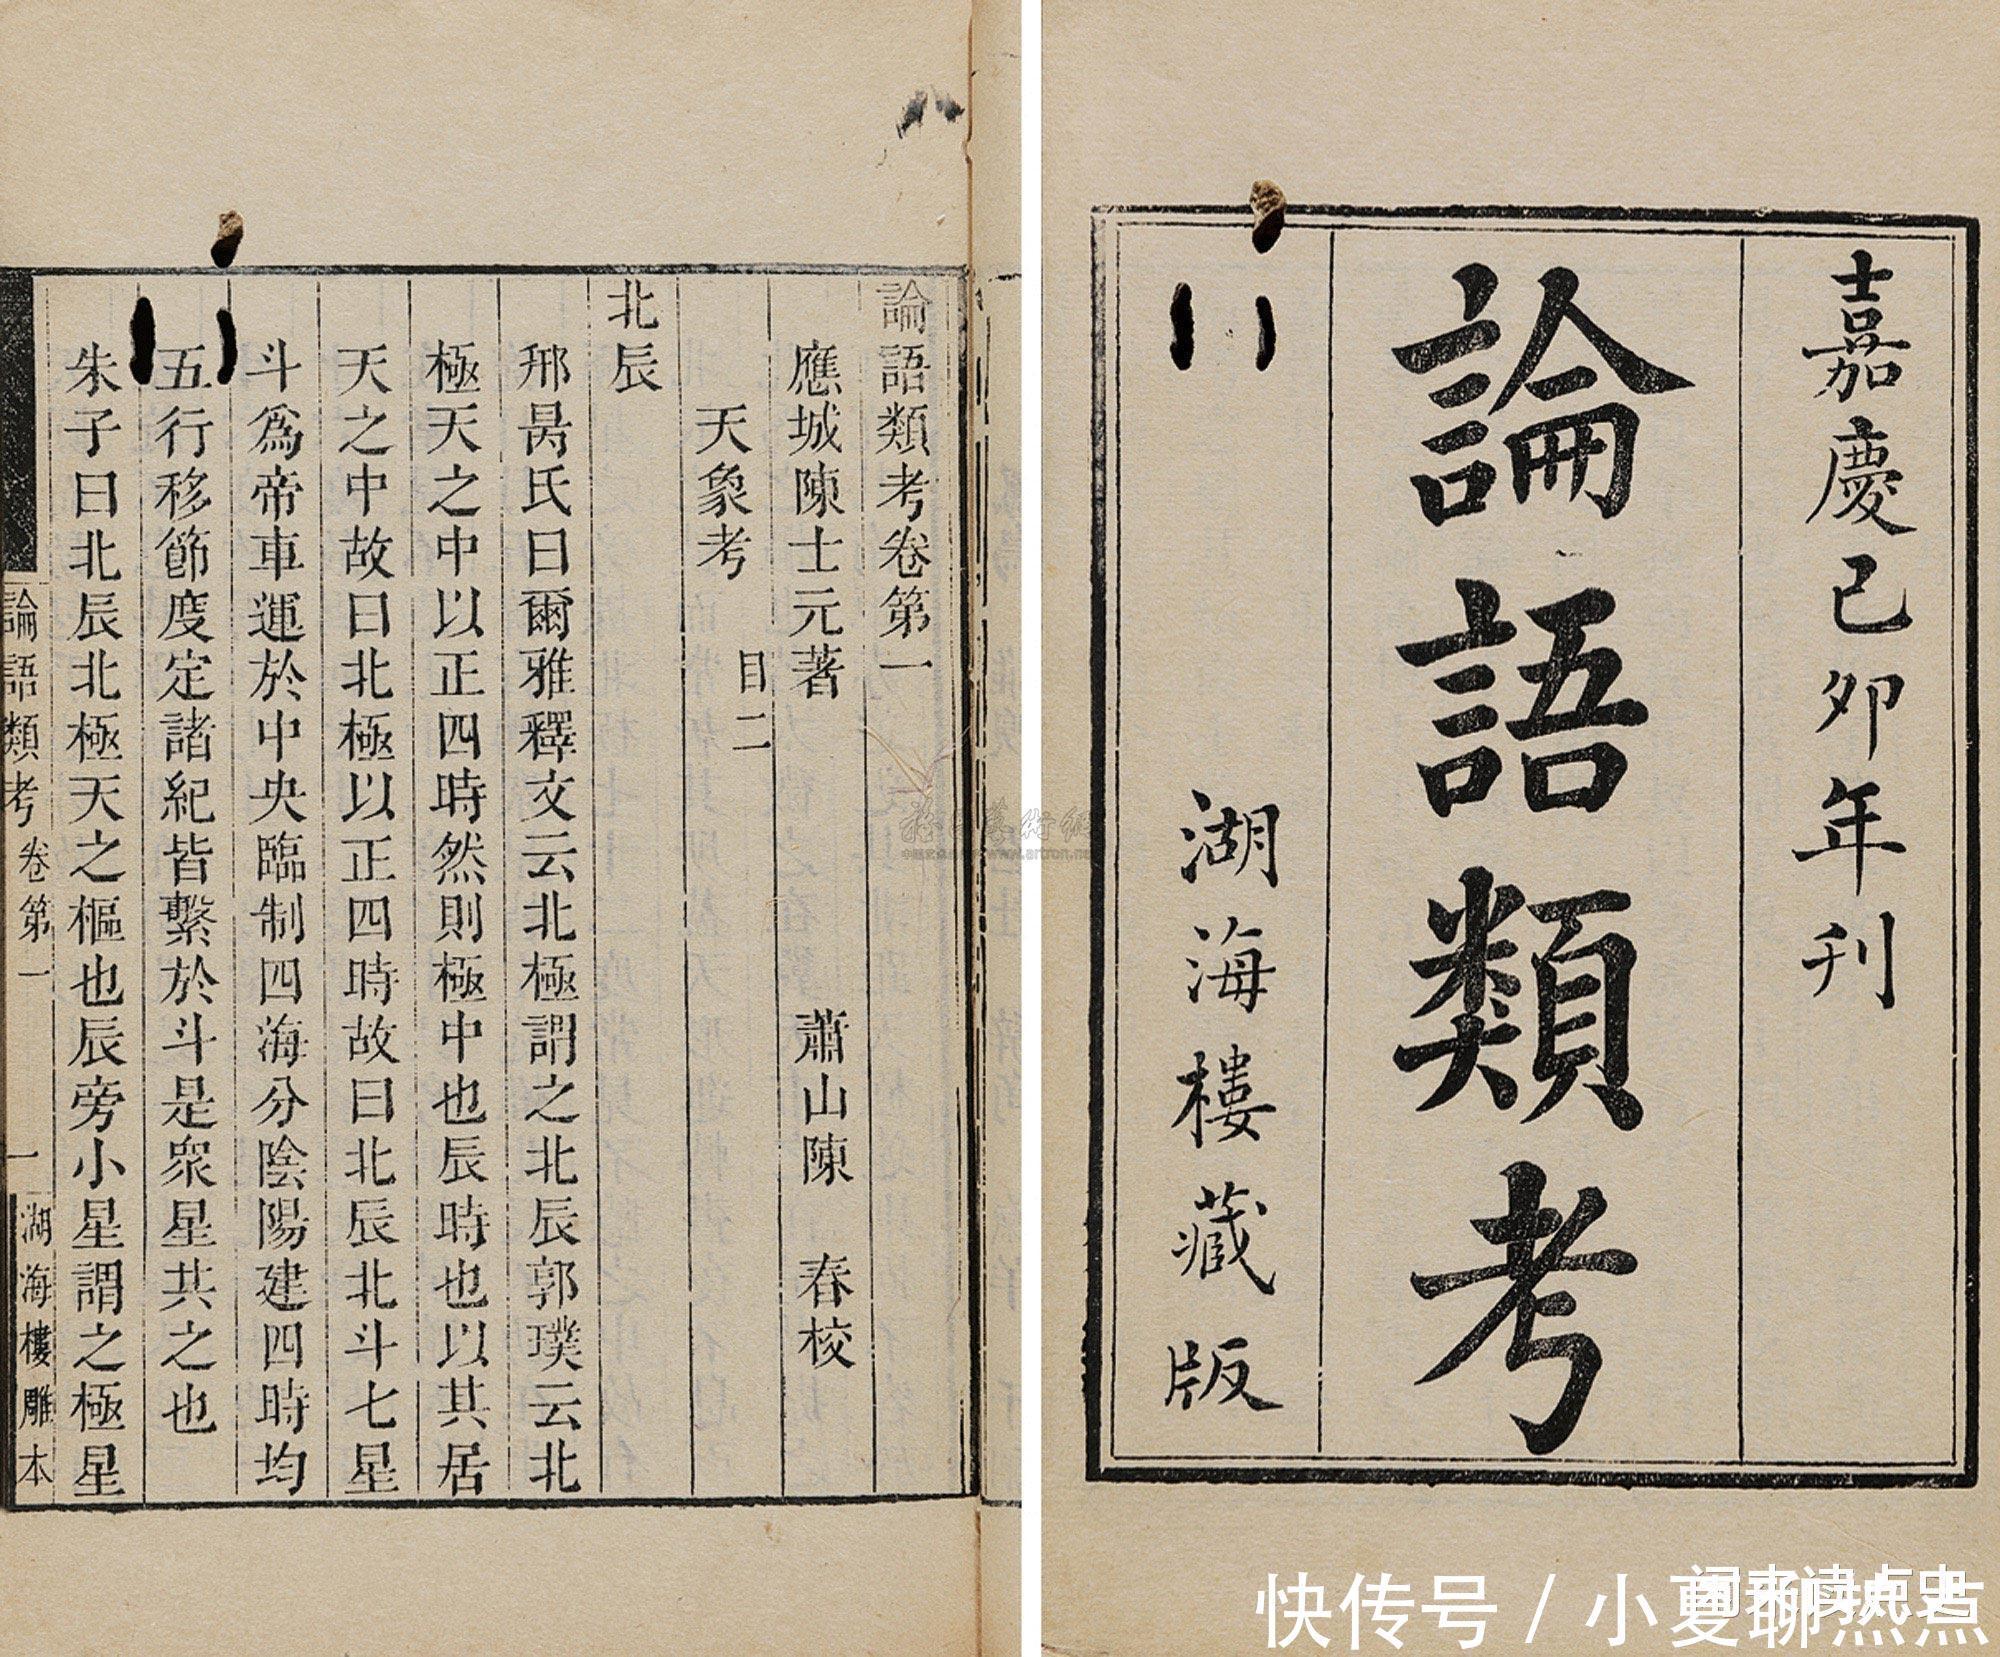 嘉慶己卯年刊
論語類考
湖海樓藏版
論語類考卷第一
應城陳士元著 蕭山陳 春校
天象考 目二
北辰
邢昺氏曰爾雅釋文云北極謂之北辰郭璞云北
極天之中以正四時然則極中也辰時也以其居
天之中故曰北極以正四時故曰北辰北斗七星
斗爲帝車運於中央臨制四海分陰陽建四時均
五行移節度定諸紀皆繫於斗是衆星共之也
朱子曰北辰北極天之樞也辰旁小星謂之極星
論語類考卷第一 一 湖海樓雕本
快传号 / 小夏聊热点